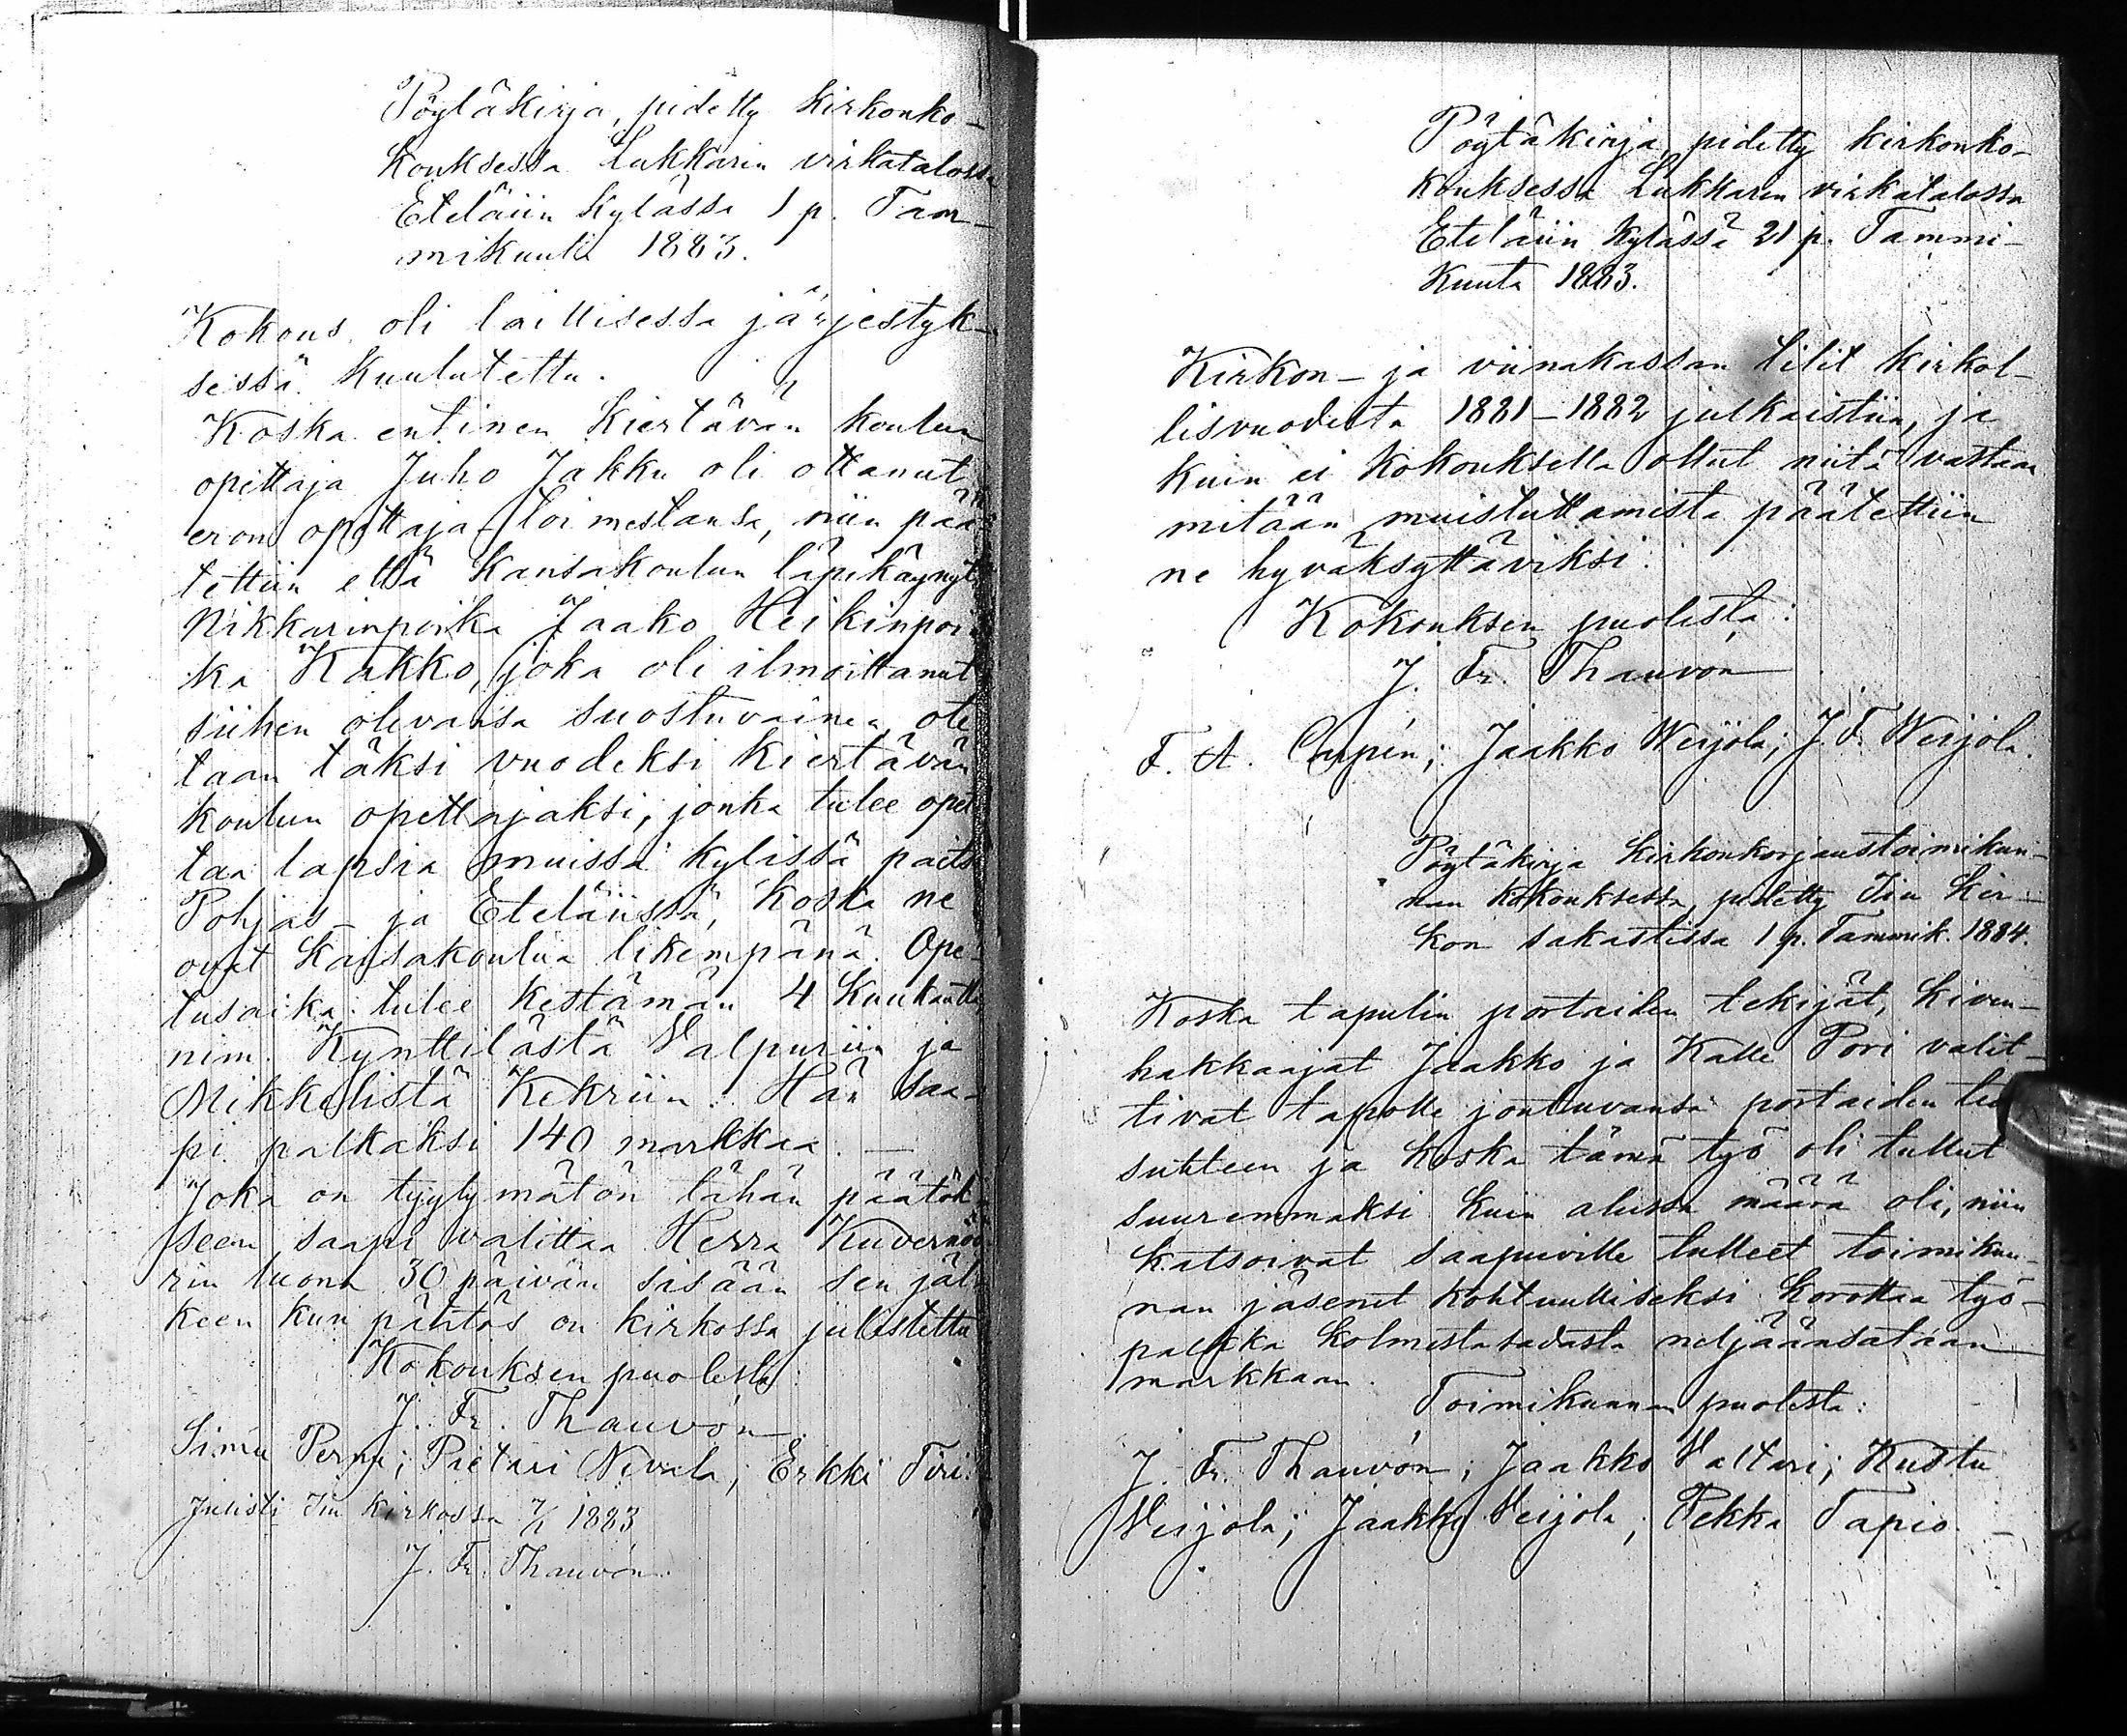 Pöytäkirja, pidetty kirkonko-
kouksessa Lukkarin virkatalossa
Eteläiin kylässä 1 p. Tam-
mikuuta 1883.
Kokous oli laillisessa järjestyk-
sessä kuulutettu.
Koska entinen kiertävän koulun
opettaja Juho Jakku oli ottanut
eron opettaja-toimestansa, niin pää-
tettiin että kansakoulun läpikäynyt
Nikkarinpoika Jaako Heikinpoi-
ka Kakko, joka oli ilmoittanut
siihen olevansa suostuvainen, ote-
taan täksi vuodeksi kiertävän
koulun opettajaksi, jonka tulee opet-
taa lapsia muissa kylissä paitsi
Pohjas- ja Eteläiissä, koska ne
ovat kansakoulua likempänä. Ope-
tusaika tulee kestämän 4 kuukautta,
nim. Kynttilästä Valpuriin ja
Mikkelistä Kekriin. Hän saa-
pi palkaksi 140 markkaa. —
Joka on tyytymätön tähän päätök-
seen saapi valittaa Herra Kuvernöö-
rin luona 30 päivän sisään sen jäl-
keen kun päätös on kirkossa julistettu
Kokouksen puolesta:
J. Fr. Thauvón.
Simu Pernu; Pietari Nivala; Erkki Tiri.
Julisti Iin kirkossa 7/1 1883
J. Fr. Thauvón.
Pöytäkirja, pidetty kirkonko-
kouksessa Lukkarin virkatalossa
Eteläiin kylässä 21 p. Tammi-
kuuta 1883.
Kirkon- ja viinakassan tilit kirkol-
lisvuodesta 1881-1882 julkaistiin, ja
kuin ei kokouksella ollut niitä vastaan
mitään muistuttamista päätettiin
ne hyväksyttäviksi.
Kokouksen puolesta:
J. Fr. Thauvón
F. A. Jaakko Weijola; J. F. Weijola.
Pöytäkirja kirkonkorjaustoimikun-
nan kokouksessa, pidetty Iin kir-
kon sakastissa 1 p. Tammik. 1884.
Koska tapulin portaiden tekijät, kiven-
hakkaajat Jaakko ja Kalle Pori valit-
tivat tapolle joutuvansa portaiden teon
suhteen ja koska tämä työ oli tullut
suuremmaksi kuin alussa määrä oli, niin
katsoivat saapuville tulleet toimikun-
nan jäsenet kohtuulliseksi korottaa työ-
palkka kolmestasadasta neljäänsataan
markkaan.
Toimikunnan puolesta:
J. Fr. Thauvón; Jaakko Valtari; Kustu
Veijola; Jaakko Veijola; Pekka Tapio. —